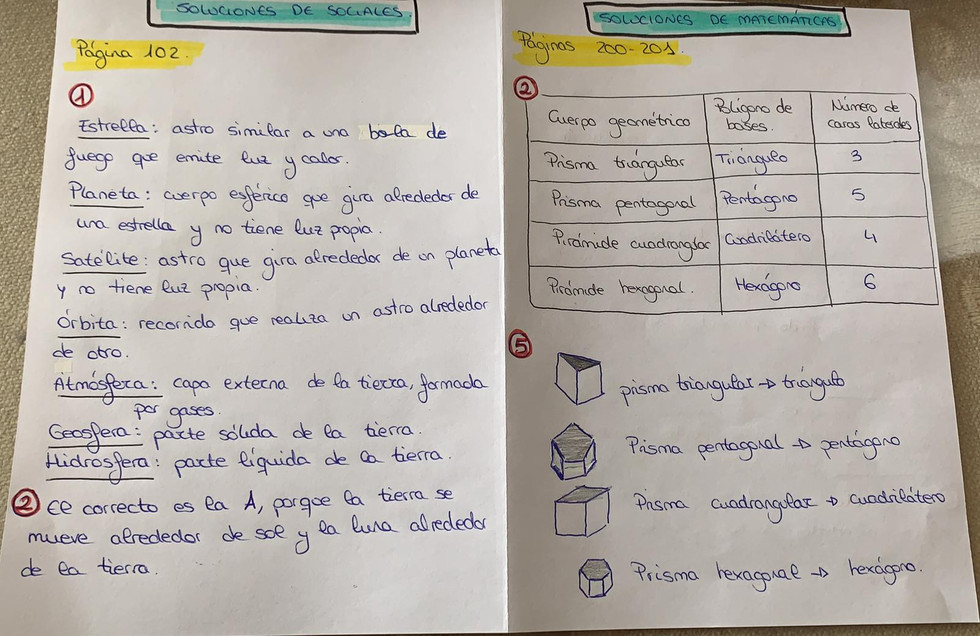 SOLUCIONES DE SOCIALES.
Página 102.
1
Estrella: astro similar a una bola de
fuego que emite luz y calor.
Planeta: cuerpo esférico que gira alrededor de
una estrella y no tiene luz propia.
Satélite: astro que gira alrededor de un planeta
y no tiene luz propia.
Órbita: recorrido que realiza un astro alrededor
de otro.
Atmósfera: capa externa de la tierra, formada
por gases.
Geosfera: parte sólida de la tierra.
Hidrosfera: parte líquida de la tierra.
2 el correcto es la A, porque la tierra se
mueve alrededor de sol y la luna alrededor
de la tierra.
SOLUCIONES DE MATEMÁTICAS
Páginas 200-201.
2
Cuerpo geométrico Polígono de bases. Número de caras laterales
Prisma triángular Triángulo 3
Prisma pentagonal Pentágono 5
Pirámide cuadrangular Cuadrilátero 4
Pirámide hexagonal. Hexágono 6
5
prisma triangular → triángulo
Prisma pentagonal → pentágono
Prisma cuadrangular → cuadrilátero
Prisma hexagonal → hexágono.